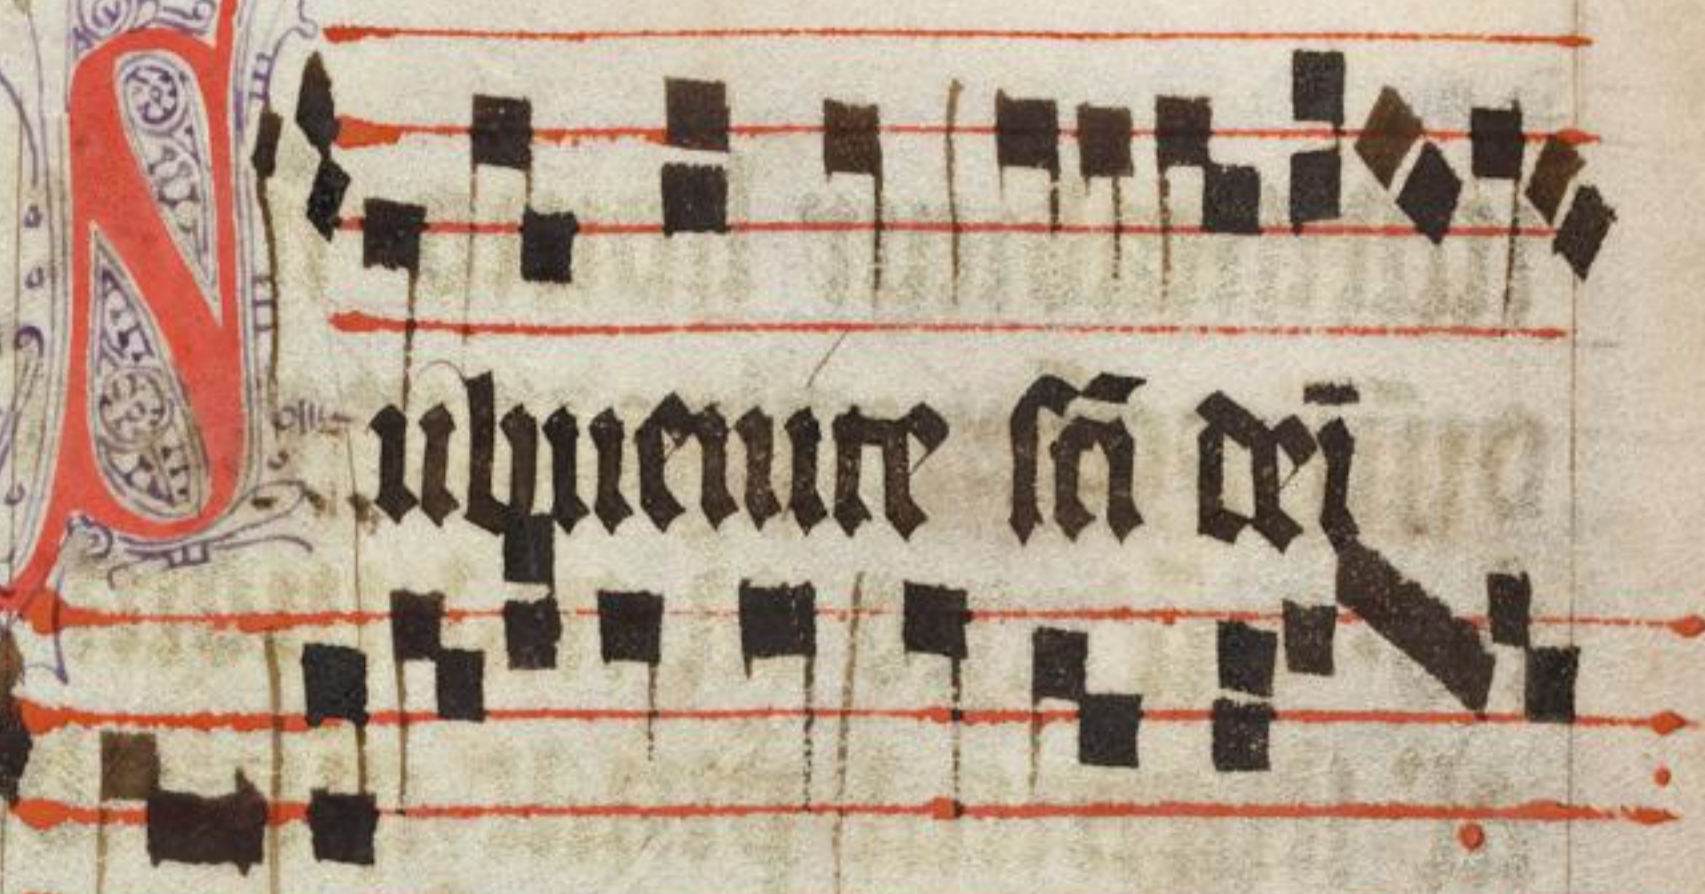 Subuenite sc̄i dei